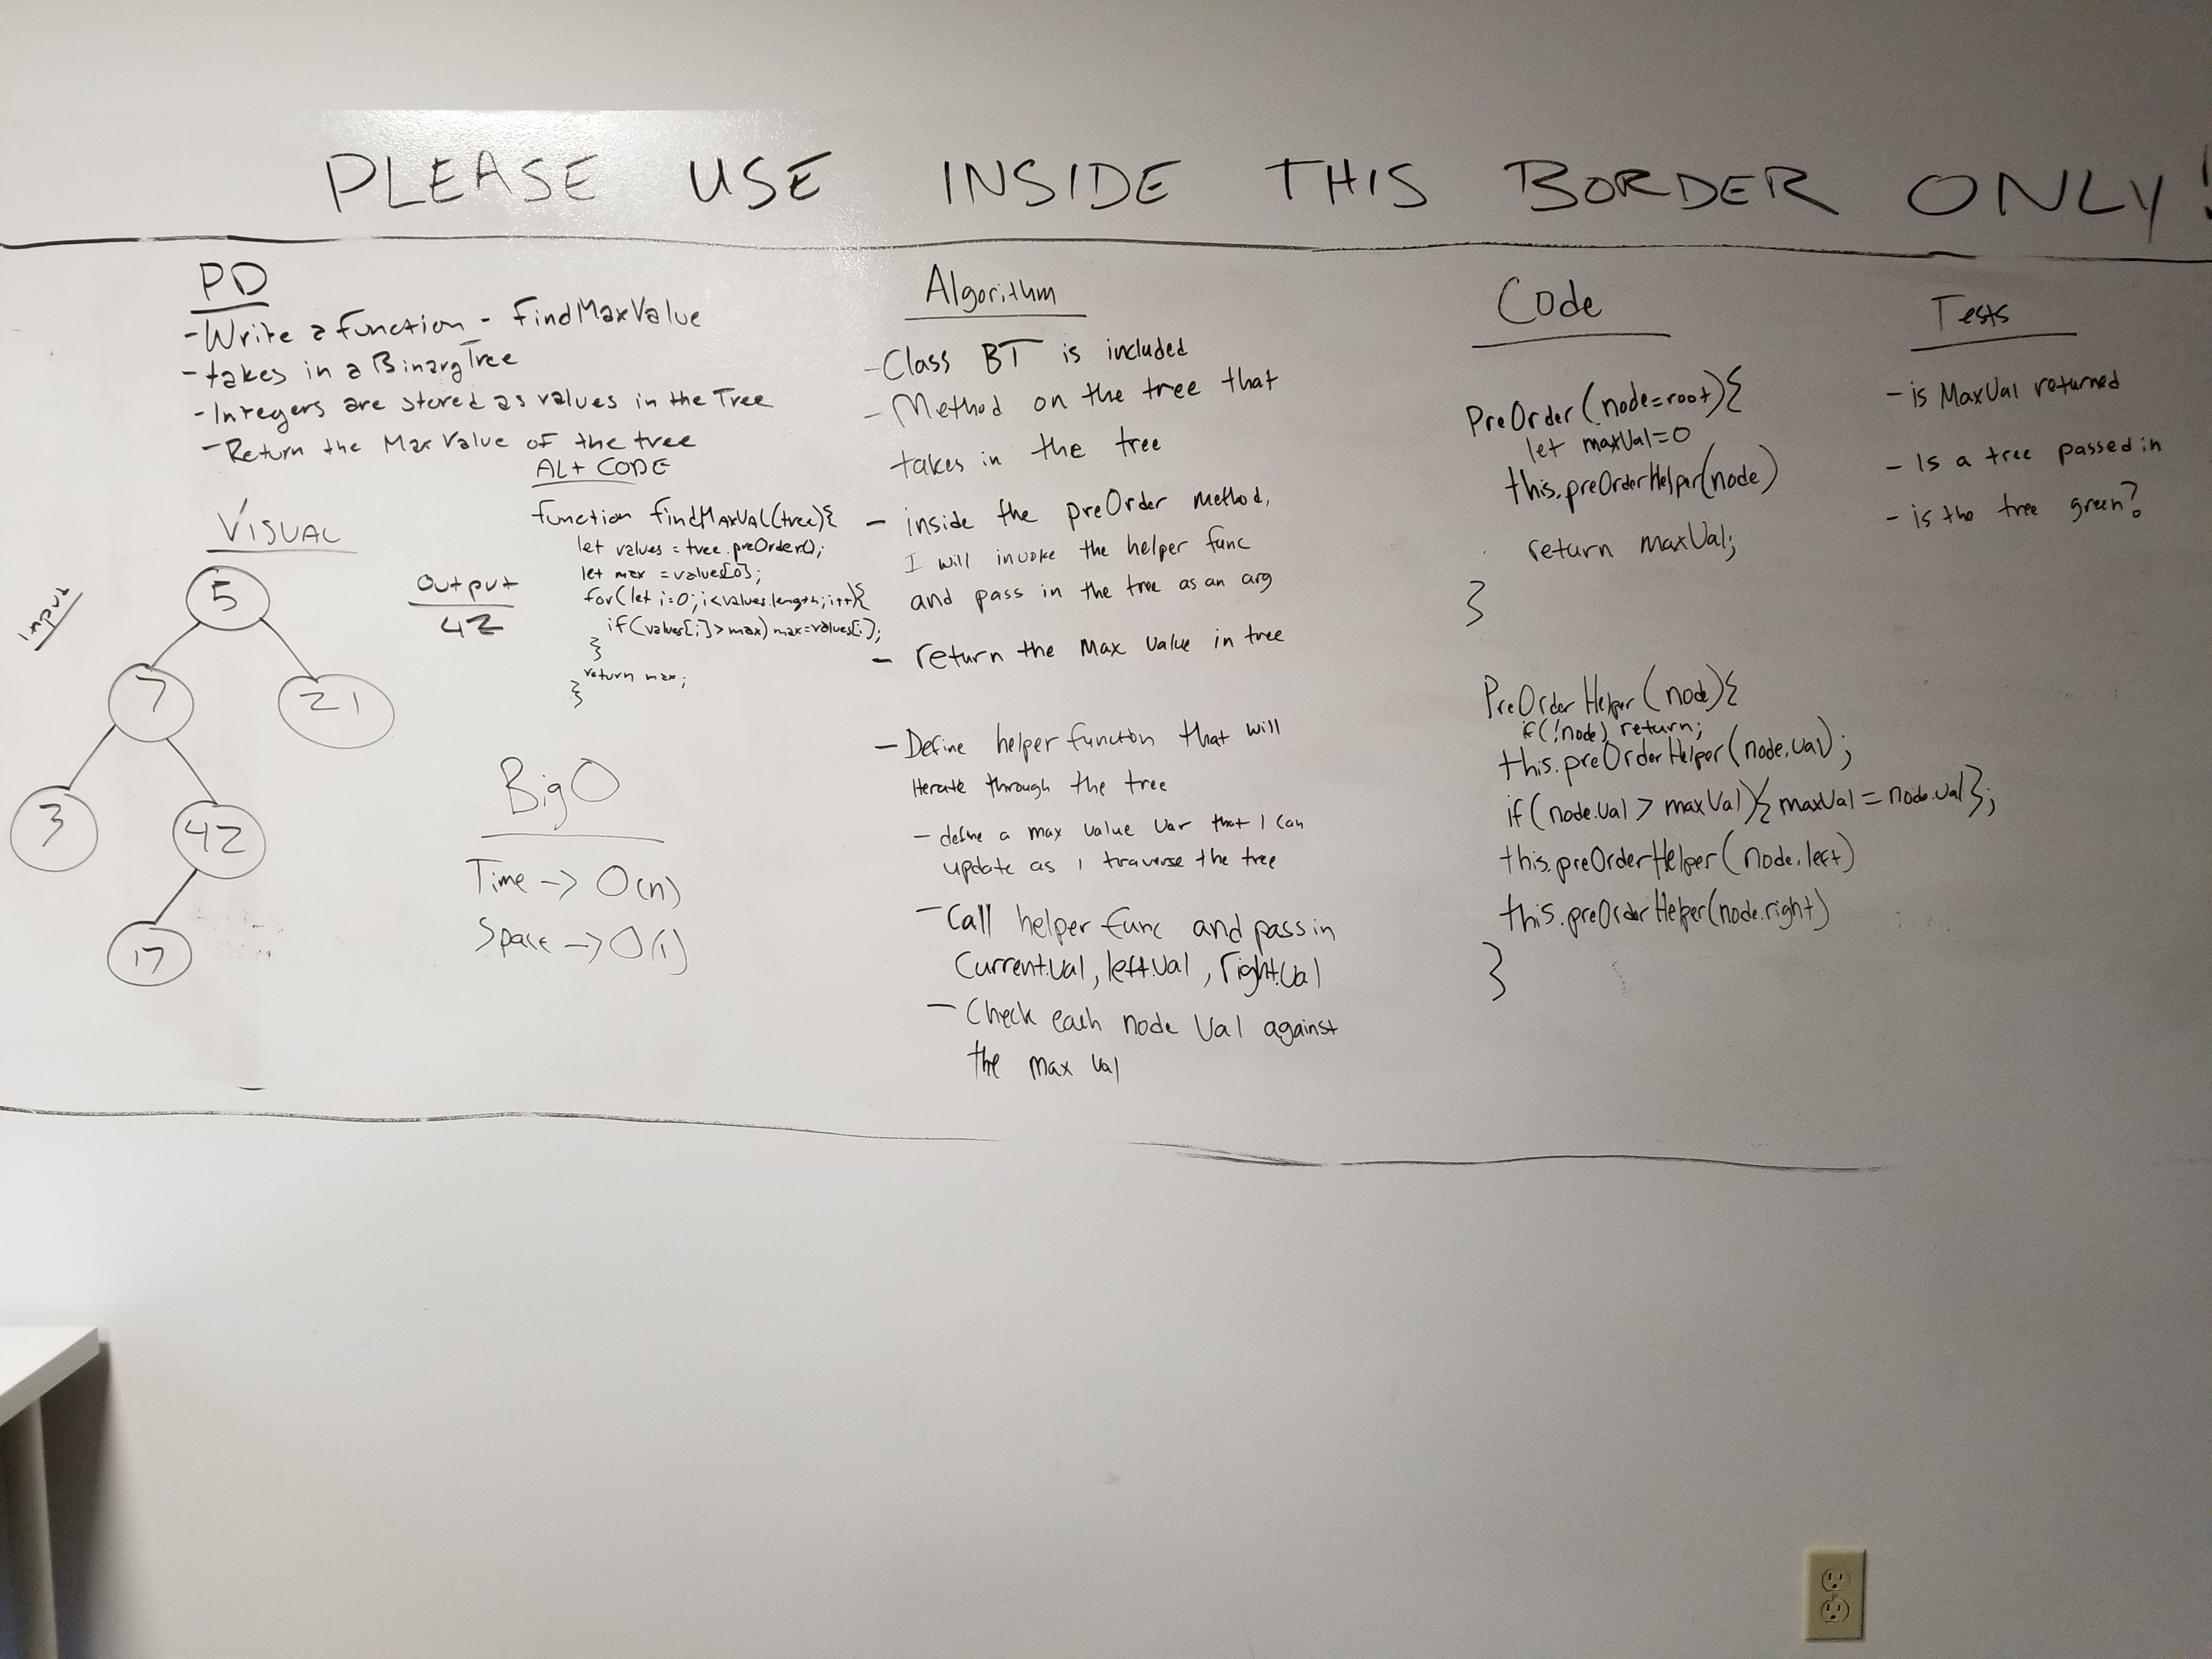 PLEASE USE INSIDE THIS BORDER ONLY!
PD
- Write a function - findMaxValue
- takes in a BinaryTree
- Integers are stored as values in the Tree
- Return the Max Value of the tree
VISUAL
Input
5
7
21
3
42
17
Output
42
ALT CODE
function findMAXVAL(tree){
let values = tree.preOrder();
let max = values[0];
for(let i=0; i<values.length; i++){
if(values[i]>max) max=values[i];
}
return max;
}
Big O
Time -> O(n)
Space -> O(1)
Algorithm
- Class BT is included
- Method on the tree that
takes in the tree
- inside the preOrder method,
I will invoke the helper func
and pass in the tree as an arg
- return the max value in tree
- Define helper function that will
iterate through the tree
- define a max value var that I can
update as I traverse the tree
- Call helper func and pass in
Current.val, left.val, right.val
- Check each node val against
the max val
Code
PreOrder(node=root){
let maxVal=0
this.preOrderHelper(node)
return maxVal;
}
PreOrderHelper(node){
if(!node) return;
this.preOrderHelper(node.val);
if(node.val > maxVal){maxVal = node.val};
this.preOrderHelper(node.left)
this.preOrderHelper(node.right)
}
Tests
- is MaxVal returned
- Is a tree passed in
- is the tree green?